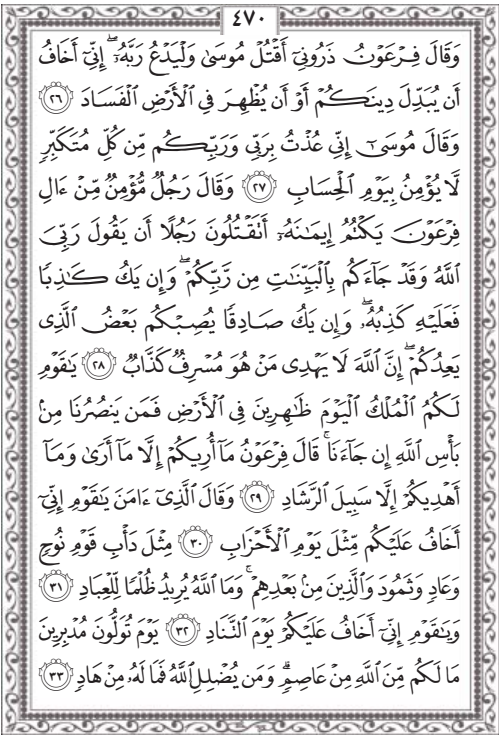 ٤٧٠
وَقَالَ فِرْعَوْنُ ذَرُونِيٓ أَقْتُلْ مُوسَىٰ وَلْيَدْعُ رَبَّهُۥٓ ۖ إِنِّيٓ أَخَافُ
أَن يُبَدِّلَ دِينَكُمْ أَوْ أَن يُظْهِرَ فِي ٱلْأَرْضِ ٱلْفَسَادَ ٢٦
وَقَالَ مُوسَىٰٓ إِنِّي عُذْتُ بِرَبِّي وَرَبِّكُم مِّن كُلِّ مُتَكَبِّرٍ
لَّا يُؤْمِنُ بِيَوْمِ ٱلْحِسَابِ ٢٧ وَقَالَ رَجُلٌ مُّؤْمِنٌ مِّنْ ءَالِ
فِرْعَوْنَ يَكْتُمُ إِيمَـٰنَهُۥٓ أَتَقْتُلُونَ رَجُلًا أَن يَقُولَ رَبِّيَ
ٱللَّهُ وَقَدْ جَآءَكُم بِٱلْبَيِّنَـٰتِ مِن رَّبِّكُمْ ۖ وَإِن يَكُ كَـٰذِبًا
فَعَلَيْهِ كَذِبُهُۥ ۖ وَإِن يَكُ صَادِقًا يُصِبْكُم بَعْضُ ٱلَّذِي
يَعِدُكُمْ ۖ إِنَّ ٱللَّهَ لَا يَهْدِي مَنْ هُوَ مُسْرِفٌ كَذَّابٌ ٢٨ يَـٰقَوْمِ
لَكُمُ ٱلْمُلْكُ ٱلْيَوْمَ ظَـٰهِرِينَ فِي ٱلْأَرْضِ فَمَن يَنصُرُنَا مِنۢ
بَأْسِ ٱللَّهِ إِن جَآءَنَا ۚ قَالَ فِرْعَوْنُ مَآ أُرِيكُمْ إِلَّا مَآ أَرَىٰ وَمَآ
أَهْدِيكُمْ إِلَّا سَبِيلَ ٱلرَّشَادِ ٢٩ وَقَالَ ٱلَّذِيٓ ءَامَنَ يَـٰقَوْمِ إِنِّيٓ
أَخَافُ عَلَيْكُم مِّثْلَ يَوْمِ ٱلْأَحْزَابِ ٣٠ مِثْلَ دَأْبِ قَوْمِ نُوحٍ
وَعَادٍ وَثَمُودَ وَٱلَّذِينَ مِنۢ بَعْدِهِمْ ۚ وَمَا ٱللَّهُ يُرِيدُ ظُلْمًا لِّلْعِبَادِ ٣١
وَيَـٰقَوْمِ إِنِّيٓ أَخَافُ عَلَيْكُمْ يَوْمَ ٱلتَّنَادِ ٣٢ يَوْمَ تُوَلُّونَ مُدْبِرِينَ
مَا لَكُم مِّنَ ٱللَّهِ مِنْ عَاصِمٍ ۗ وَمَن يُضْلِلِ ٱللَّهُ فَمَا لَهُۥ مِنْ هَادٍ ٣٣